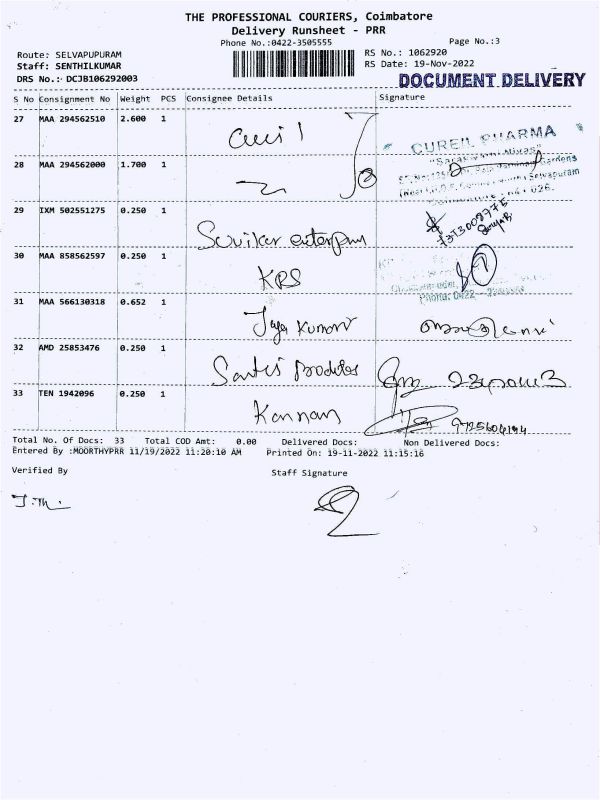 THE PROFESSIONAL COURIERS, Coimbatore
Delivery Runsheet - PRR
Phone No.:0422-3505555
Page No.:3
Route: SELVAPUPURAM
RS No.: 1062920
Staff: SENTHILKUMAR
RS Date: 19-Nov-2022
DRS No.: DCJB106292003
DOCUMENT DELIVERY
S No Consignment No Weight PCS Consignee Details Signature
27 MAA 294562510 2.600 1
CUREIL PHARMA
28 MAA 294562000 1.700 1
29 IXM 502551275 0.250 1
30 MAA 858562597 0.250 1
KRS
31 MAA 566130318 0.652 1
Jaya Kumar
32 AMD 25853476 0.250 1
33 TEN 1942096 0.250 1
Kannan
Total No. Of Docs: 33 Total COD Amt: 0.00 Delivered Docs: Non Delivered Docs:
Entered By :MOORTHYPRR 11/19/2022 11:20:10 AM Printed On: 19-11-2022 11:15:16
Verified By Staff Signature